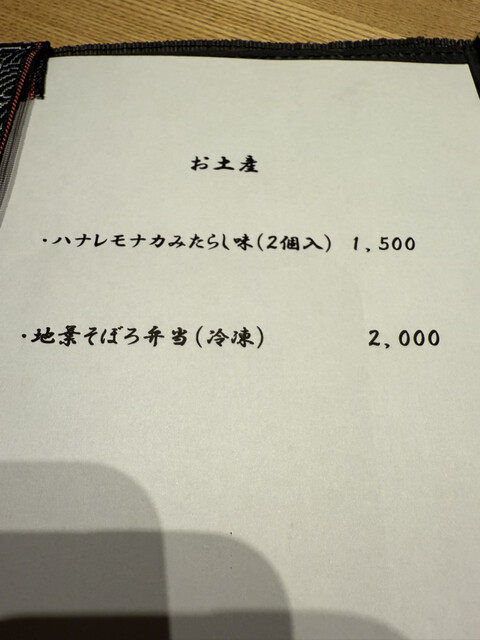 お土産
・ハナレモナカみたらし味(2個入) 1,500
・地葉そぼろ弁当(冷凍) 2,000